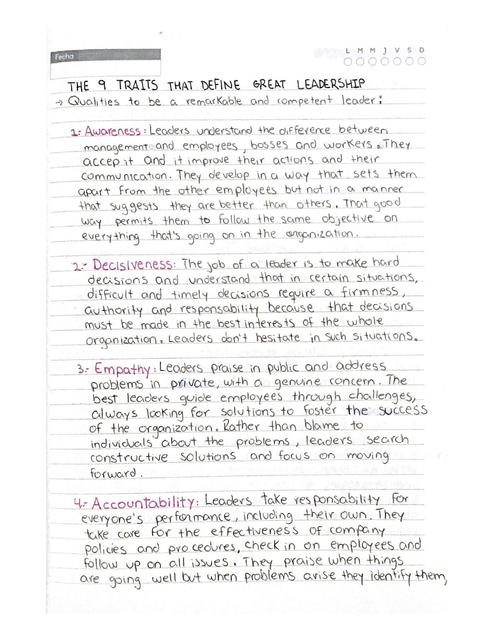 Fecha
L M M J V S D
THE 9 TRAITS THAT DEFINE GREAT LEADERSHIP
→ Qualities to be a remarkable and competent leader:
1.- Awareness: Leaders understand the difference between
management and employees, bosses and workers. They
accep it and it improve their actions and their
communication. They develop in a way that sets them
apart from the other employees but not in a manner
that suggests they are better than others. That good
way permits them to follow the same objective on
everything that's going on in the organization.
2.- Decisiveness: The job of a leader is to make hard
decisions and understand that in certain situations,
difficult and timely decisions require a firmness,
authority and responsability because that decisions
must be made in the best interests of the whole
organization. Leaders don't hesitate in such situations.
3.- Empathy: Leaders praise in public and address
problems in private, with a genuine concern. The
best leaders guide employees through challenges,
always looking for solutions to foster the success
of the organization. Rather than blame to
individuals about the problems, leaders search
constructive solutions and focus on moving
forward.
4.- Accountability: Leaders take responsability for
everyone's performance, including their own. They
take care for the effectiveness of company
policies and procedures, check in on employees and
follow up on all issues. They praise when things
are going well but when problems arise they identify them,